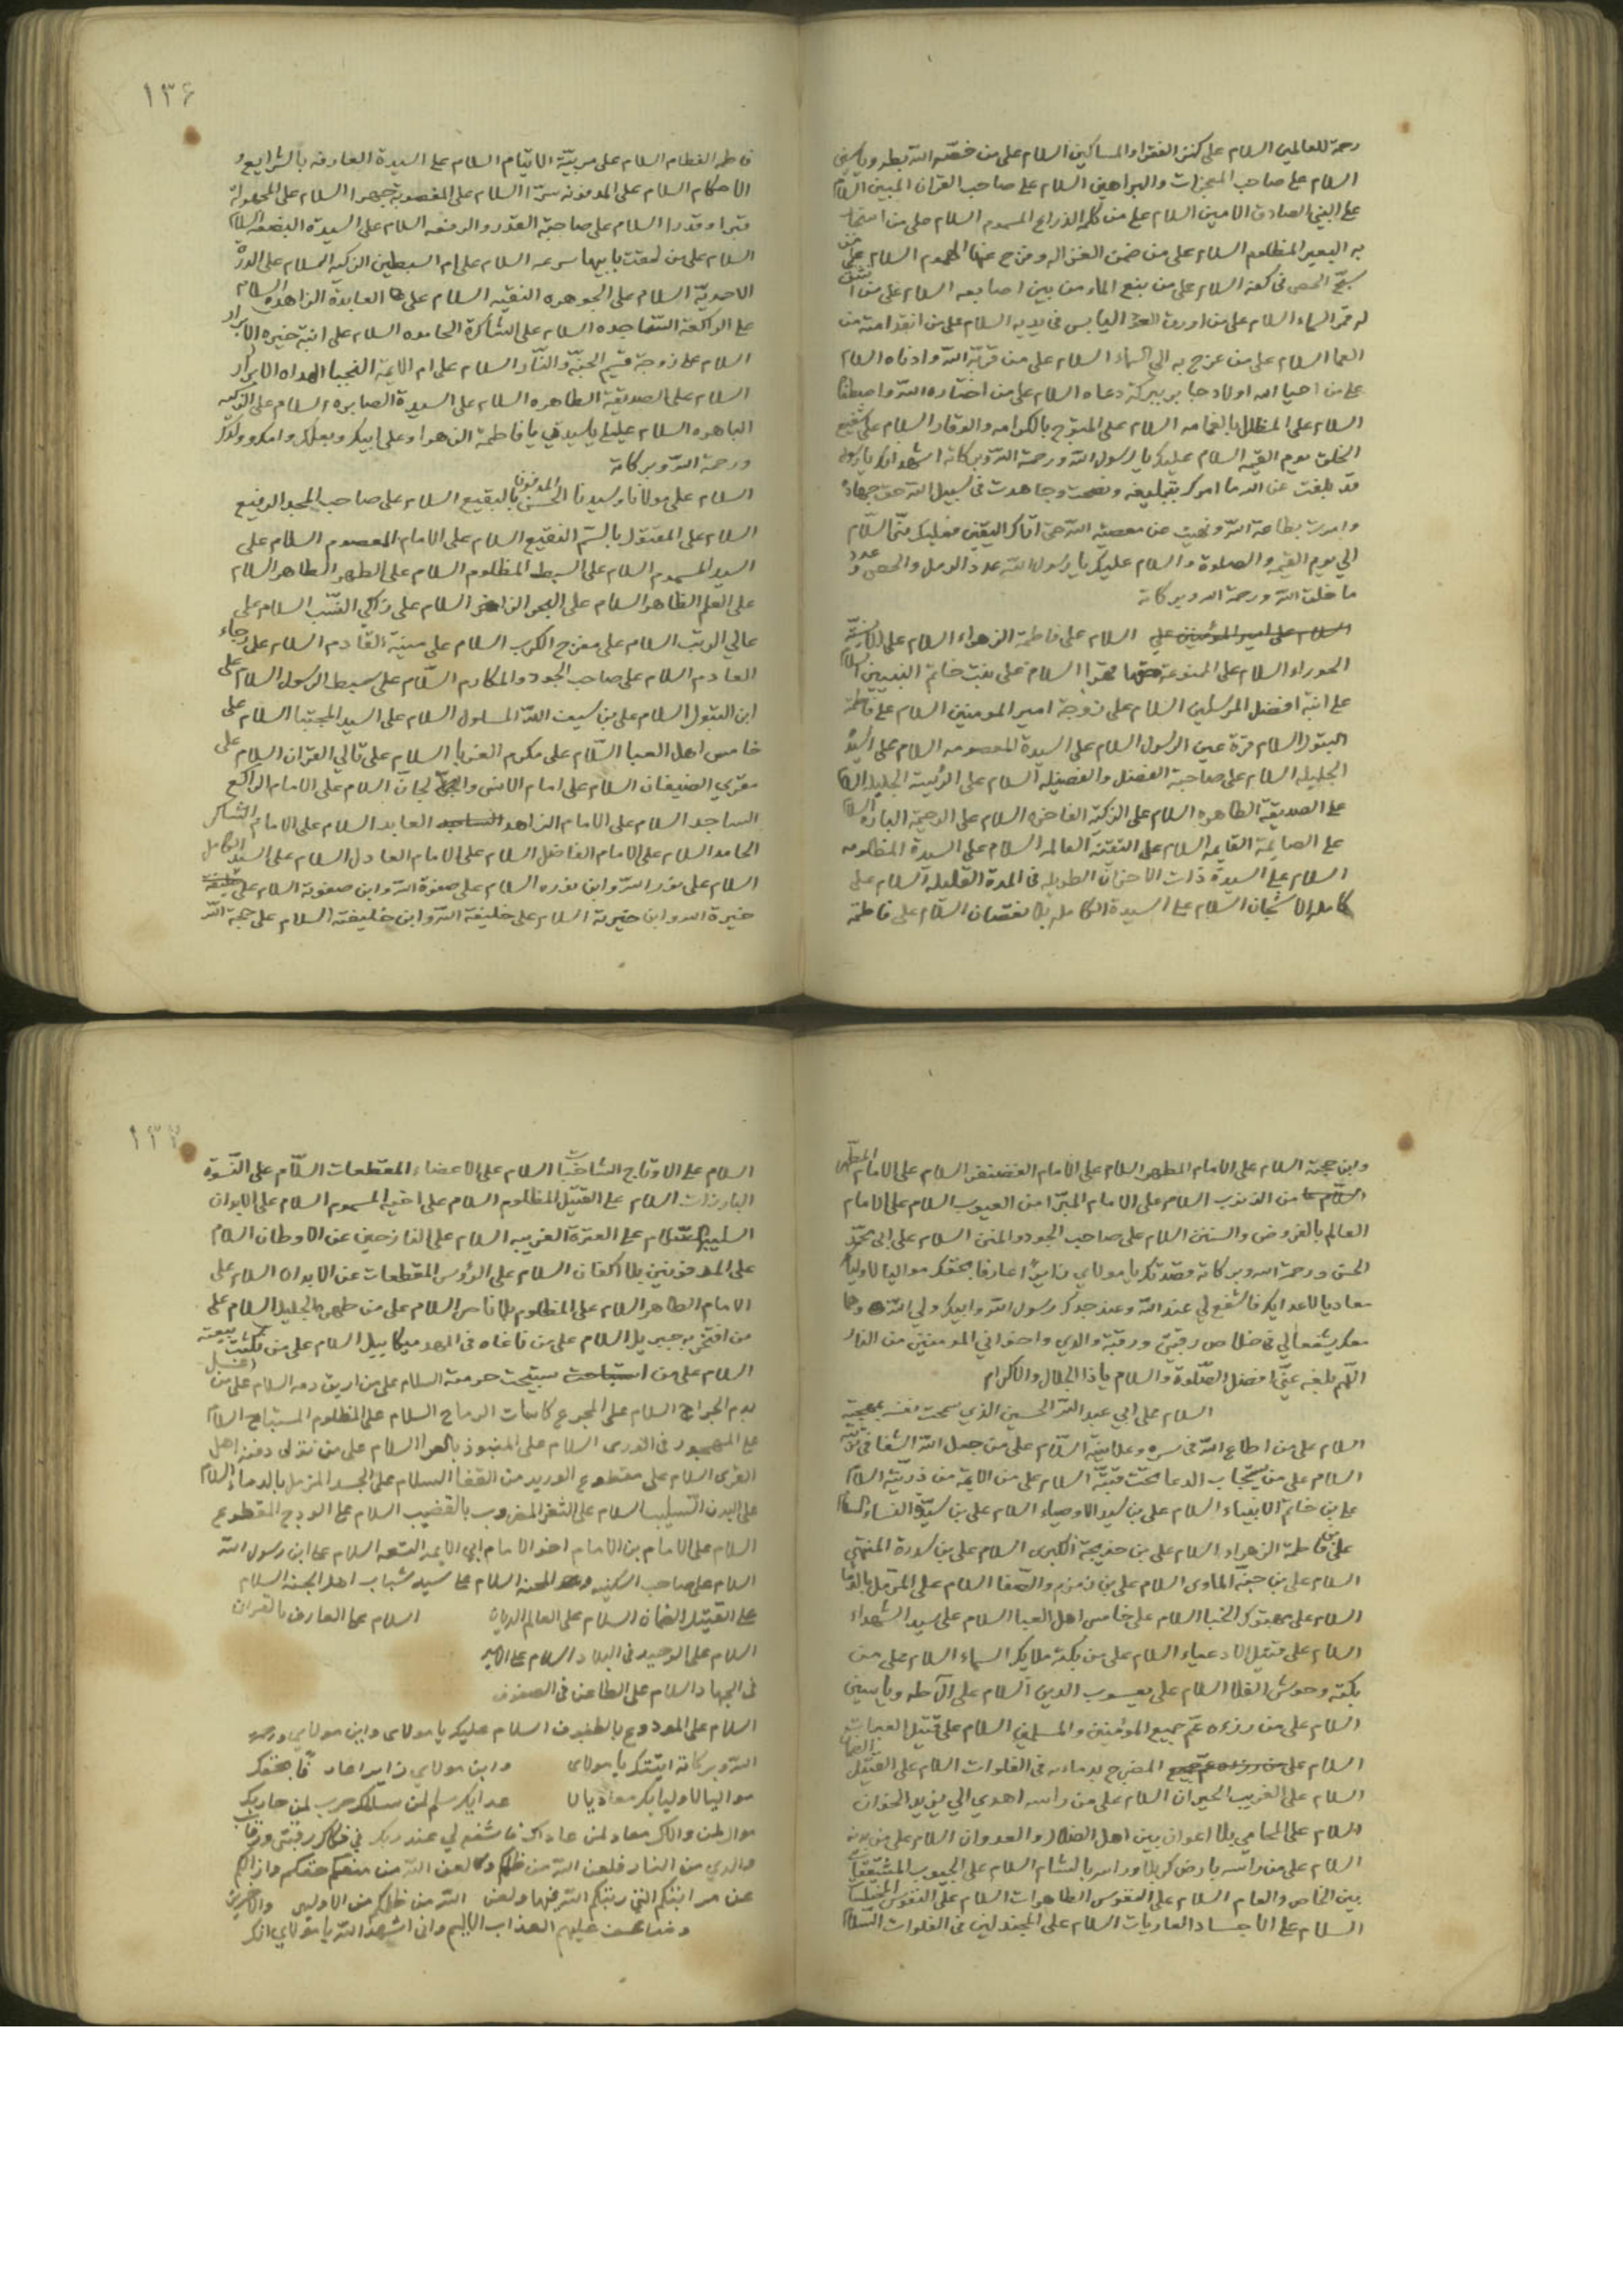 رحمة للعالمين السلام على كنز الفقراء والمساكين السلام على من خصّه الله بطه وياسين
السلام على صاحب المعجزات والبراهين السلام على صاحب القران المبين السلام
على النبي الصادق الامين السلام على من كلمه الذراع المسموم السلام على من استجار
به البعير المظلوم السلام على من ضمن الغزاله وفرج عنها الهموم السلام على من
سبّح الحصى في كفه السلام على من نبع الماء من بين اصابعه السلام على من انشق
له قمر السماء السلام على من اورق العود اليابس في يديه السلام على من انقذ امته من
العما السلام على من عرج به الى السماء السلام على من قرّبه الله وادناه السلام
على من احيا الله اولاد جابر ببركة دعاه السلام على من اختاره الله واصطفا
السلام على المظلل بالغمامه السلام على المتوج بالكرامه والوقار السلام على شفيع
الخلق يوم القيمه السلام عليك يا رسول الله ورحمة الله وبركاته اشهد انك يا رسول
قد بلغت عن الله ما امرك بتبليغه ونصحت وجاهدت في سبيل الله حق جهاده
وامرت بطاعة الله ونهيت عن معصية الله حتى اتاك اليقين فعليك منّا السلام
الى يوم القيمه والصلوة والسلام عليك يا رسول الله عدد الرمل والحصى وعدد
ما خلق الله ورحمة الله وبركاته
السلام على امير المؤمنين على السلام على فاطمة الزهراء السلام على الانسيّة
الحوراء السلام على الممنوعة حقها قهرا السلام على بنت خاتم النبيين السلام
على ابنة افضل المرسلين السلام على زوجة امير المومنين السلام على فاطمة
البتول السلام قرة عين الرسول السلام على السيدة المعصومه السلام على السيدة
الجليله السلام على صاحبة الفضل والفضيله السلام على الرئيسة الجليلة السلام
على الصديقة الطاهره السلام على الزكية الفاخره السلام على الرحيمة الباره السلام
على الصايمة القايمه السلام على التقيّة العالمه السلام على السيدة المظلومه
السلام على السيدة ذات الاحزان الطويله في المدة القليله السلام على
كاملة الاشجان السلام على السيدة الكامله بلا نقصان السلام على فاطمه
١٣۶
فاطمه الفطام السلام على مربيّة الايتام السلام على السيدة العارفه بالشرايع و
الاحكام السلام على المدفونه سرّا السلام على المغصوبة جهرا السلام على المجهولة
قبرا وقدرا السلام على صاحبة القدر والرفعه السلام على السيدة البضعه السلام
السلام على من لحقت بابيها سرعه السلام على ام السبطين الزكيه السلام على الدرّة
الاحديّة السلام على الجوهره النقيه السلام على العابدة الزاهده السلام
على الراكعة الساجده السلام على الشاكرة الحامده السلام على ابنة خيره الابرار
السلام على زوجة قسيم الجنّة والنّار السلام على ام الايمة النجبا الهداه الابرار
السلام على الصديقة الطاهره السلام على السيدة الصابره السلام على الزكيه
الباهره السلام عليك يا سيدتي يا فاطمة الزهرا وعلى ابيك وبعلك وامك وولدك
ورحمة الله وبركاته
السلام على مولانا وسيدنا الحسن المدفون بالبقيع السلام على صاحب المجد الرفيع
السلام على المقتول بالسّم النقيع السلام على الامام المعصوم السلام على
السيد المسموم السلام على السبط المظلوم السلام على الطهر الطاهر السلام
على العلم الظاهر السلام على البحر الزاخر السلام على زاكي النسب السلام على
عالي الرتب السلام على مفرج الكرب السلام على منية القادم السلام على رجاء
العادم السلام على صاحب الجود والمكارم السّلام على سبط الرسول السلام على
ابن البتول السلام على بن سيف الله المسلول السلام على السيد المجتبا السلام على
خامس اهل العبا السّلام على مكرم الغربا السلام على تالي القران السلام على
مقري الضيفان السلام على امام الانس والجان السلام على الامام الراكع
الساجد السلام على الامام الزاهد الساجد العابد السلام على الامام الشاكر
الحامد السلام على الامام الفاضل السلام على الامام العادل السلام على السيد الكامل
السلام على نور الله وابن نوره السلام على صفوة الله وابن صفوته السلام على خليفة
خيرة الله وابن خيرته السلام على خليفة الله وابن خليفته السلام على حجة الله
وابن حجته السلام على الامام المطهر السلام على الامام الغضنفر السلام على الامام المطهر
السلام على من الذنوب السلام على الامام المبرّا من العيوب السلام على الامام
العالم بالفروض والسنن السلام على صاحب الجود والمنن السلام على ابى محمّد
الحسن ورحمة الله وبركاته قصدتك يا مولاي زايرًا عارفا بحقك مواليا لاولياك
معاديا لاعدايك فاشفع لي عند الله وعند جدك رسول الله وابيك ولي الله وامّا
معك يشفعا لي في خلاص رقبتي ورقبة والدي واخواني المومنين من النار
اللّهم بلغه عنّي افضل الصّلوة والسلام يا ذا الجلال والاكرام
السلام على ابي عبد الله الحسين الذي سمحت نفسه بمهجته
السلام على من اطاع الله في سره وعلانيته السّلام على من جعل الله الشفا في تربته
السلام على من يستجاب الدعا تحت قبّته السلام على من الايمة من ذريّته السلام
على بن خاتم الانبياء السلام على بن سيد الاوصياء السلام على بن سيدة النساء السلام
على بن فاطمة الزهراء السلام على بن خديجة الكبرى السلام على بن سدرة المنتهى
السلام على بن جنّة الماوى السلام على بن زمزم والصفا السلام على المرمل بالدما
السلام على مهتوك الخبا السلام على خامس اهل العبا السلام على سيد الشهداء
السلام على قتيل الادعياء السلام على من بكته ملايكة السماء السلام على من
بكته وحوش الفلا السلام على يعسوب الدين السلام على آل طه وياسين
السلام على من رزءه عمّ جميع المؤمنين والمسلمين السلام على قتيل العبرات
السلام على من رزءه عمّ جميع المضرج بدماءه في الفلوات السلام على القتيل الظمآن
السلام على الغريب الحيران السلام على من راسه اهدي الى يزيد الخوان
السلام على المحامي بلا اعوان بين اهل الضلال والعدوان السلام على من
السلام على من راسه بارض كربلا وراسه بالشام السلام على الجيوب المشققات
بين الخاص والعام السلام على النفوس الطاهرات السلام على النفوس
السلام على الاجساد العاريات السلام على المجندلين في الفلوات السلام
١٣٧
السلام على الاوداج الشاخبات السلام على الاعضاء المقطعات السّلام على النّسوة
البارزات السلام على القتيل المظلوم السلام على اخيه المسموم السلام على الابدان
السليبه السّلام على العترة الغريبه السلام على النازحين عن الاوطان السلام
على المدفونين بلا اكفان السلام على الرؤس المقطعات عن الابدان السلام على
الامام الطاهر السلام على المظلوم بلا ناصر السلام على من طهره الجليل السلام على
من افتخر به جبريل السلام على من ناغاه في المهد ميكاييل السلام على من نكثت بيعته
السلام على من استباحت ستبيحت حرمته السلام على من اريق دمه السلام على من اغسل
بدم الجراح السلام على المجرع كاسات الرماح السلام على المظلوم المستباح السلام
على المهجور في الورى السلام على المنبوذ بالعرا السلام على من تولى دفنه اهل
القرى السلام على مقطوع الوريد من القفا السلام على الجسد المزمل بالدماء السلام
على البدن السّليب السلام على الثغر المضروب بالقضيب السلام على الودج المقطوع
السلام على الامام بن الامام اخو الامام ابي الايمه التسعه السلام على ابن رسول الله
السلام على صاحب السكينه السلام على سيد شباب اهل الجنه السلام
على القتيل الظمان السلام على العالم الديان السلام على العارف بالقران
السلام على الوحيد في البلاد السلام على
في الجهاد السلام على الطاعن في الصفوف
السلام على المودوع بالطفوف السلام عليك يا مولاى وابن مولاي ورحمة
الله وبركاته اتيتك يا مولاى وابن مولاي زايرا عارفا بحقك
مواليا لاوليايك معاديا لاعدايك سلم لمن سالمك حرب لمن حاربك
موال لمن والاك معاد لمن عاداك فاشفع لي عند ربك في فكاك رقبتي ورقاب
والدي من النار فلعن الله من ظلمكم ولعن الله من منعكم حقكم وازالكم
عن مراتبكم التي رتبكم الله فيها ولعن الله من ظلمكم من الاولين والاخرين
وضاعف عليهم العذاب الاليم وانى اشهد الله يا مولاي انك